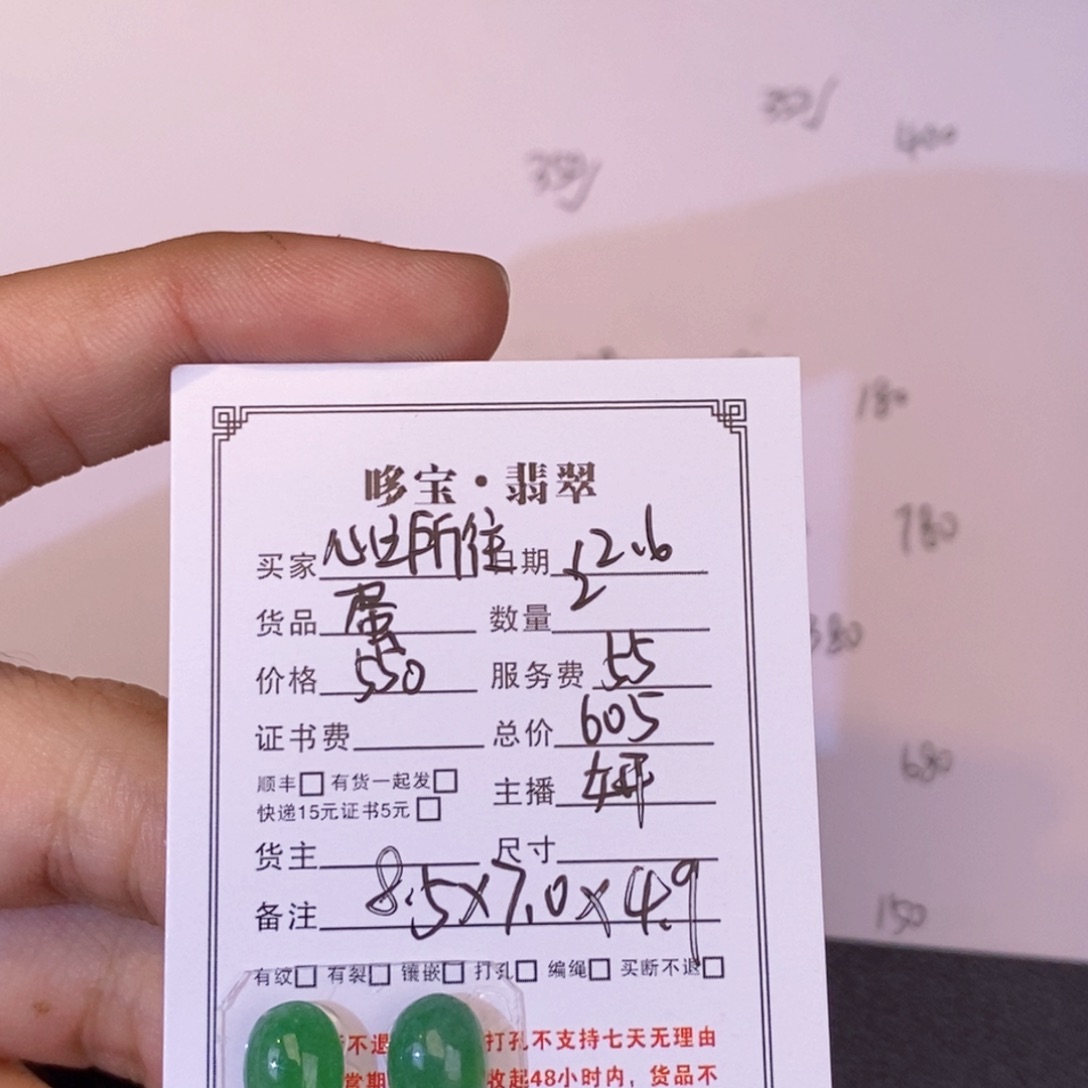 350/
400
350/
180
780
380
680
150
哆宝·翡翠
买家 心之所往 日期 12.6
货品 蛋 数量 2
价格 550 服务费 55
证书费 总价 605
顺丰□ 有货一起发□
快递15元证书5元□
主播 妍
货主 尺寸
备注 8.5×7.0×4.9
有纹□ 有裂□ 镶嵌□ 打孔□ 编绳□ 买断不退□
不退 打孔不支持七天无理由
收起48小时内，货品不